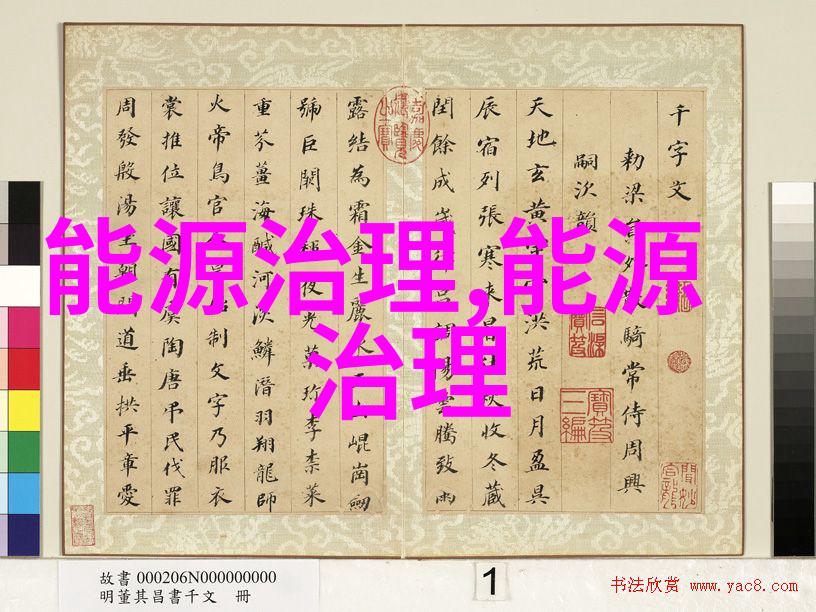 千字文
勅梁員外散騎常侍周興
嗣次韻
天地玄黃宇宙洪荒日月盈昃
辰宿列張寒来暑往秋收冬藏
閏餘成歲律呂調陽雲騰致雨
露結為霜金生麗水玉出崐崗劒
號巨闕珠稱夜光菓珍李柰菜
重芥薑海鹹河淡鱗潛羽翔龍師
火帝鳥官人皇始制文字乃服衣
裳推位讓國有虞陶唐弔民伐罪
周發殷湯坐朝問道垂拱平章愛
嘉慶御覽之寶
寶笈三編
能源治理,能源
治理
故書 000206N000000000
明董其昌書千文 冊
1
书法欣赏 www.yac8.com